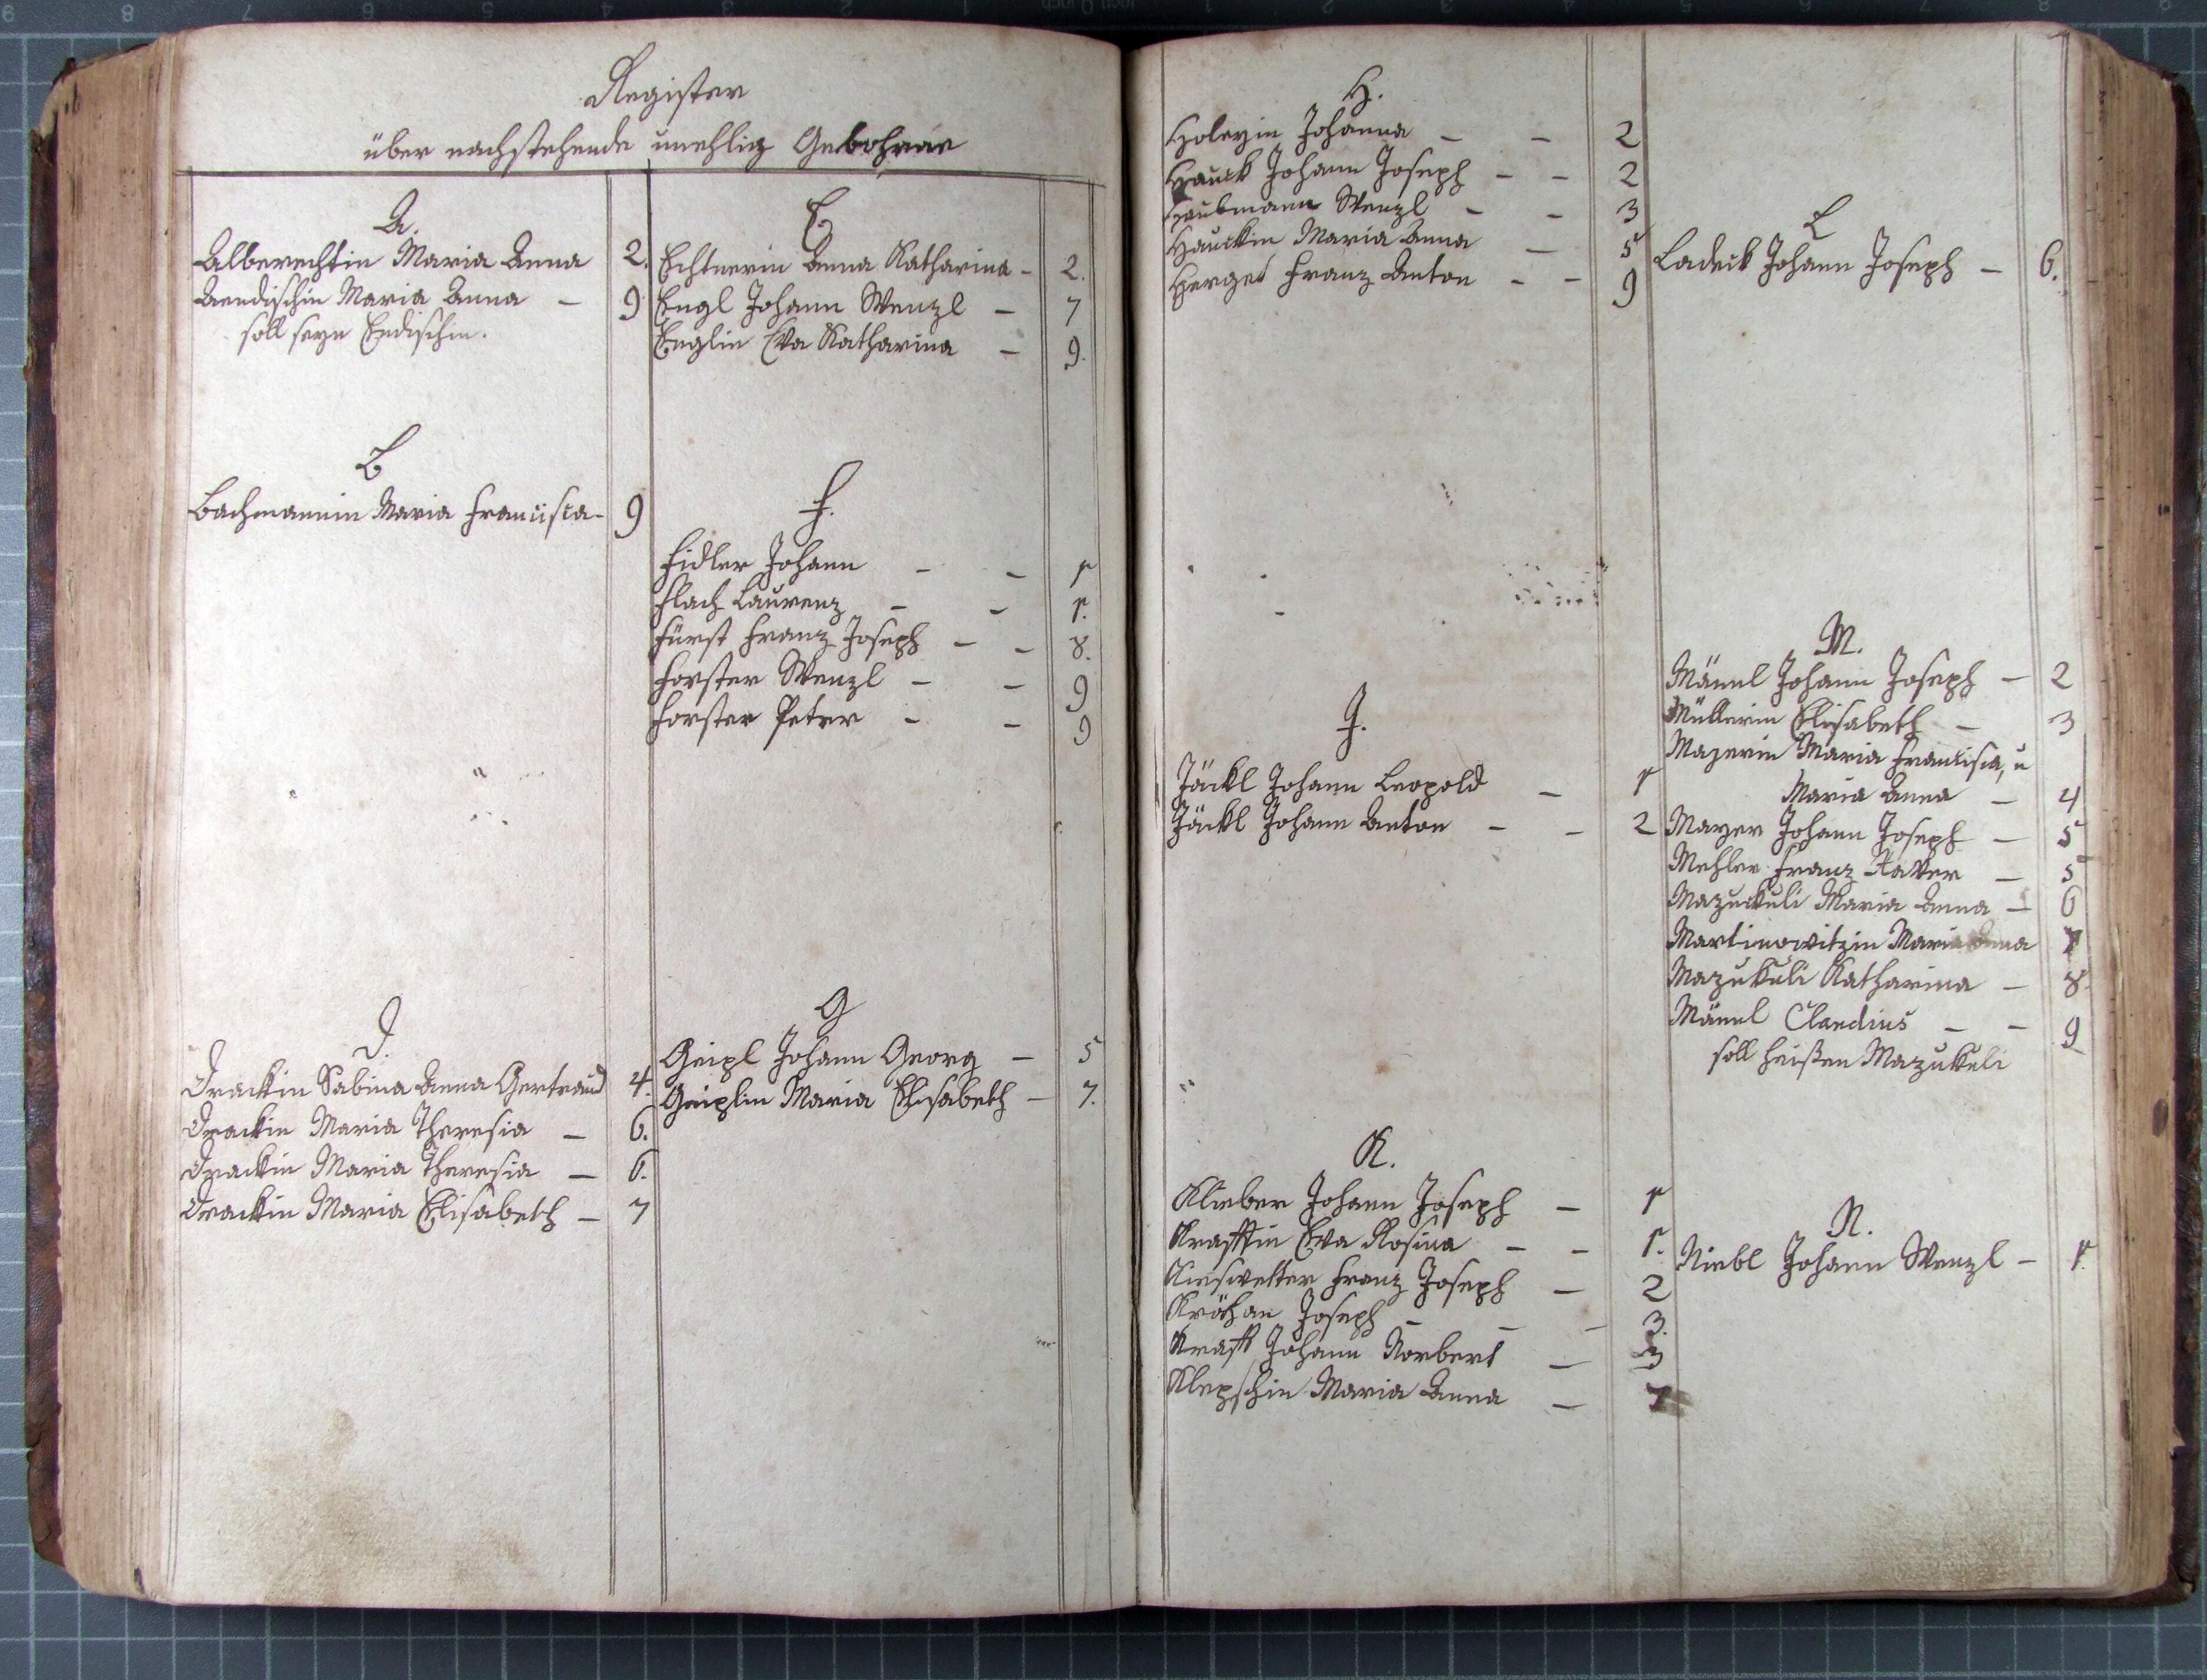 Register
über nachstehende unehlig Gebohrne
A.
Alberechtin Maria Anna 2.
Aendischin Maria Anna – 9
soll seyn Endischin.
B
Bachmannin Maria Francisca - 9
D.
Drackin Sabina Anna Gertraud 4.
Drackin Maria Theresia – 6.
Drackin Maria Theresia – 6.
Drackin Maria Elisabeth – 7
E
Echtnerin Anna Katharina - 2.
Engl Johann Wenzl – 7
Englin Eva Katharina – 9.
F.
Fidler Johann – – 1
Flach Laurenz – – 1.
Fürst Franz Joseph – – 8.
Forster Wenzl – – 9
Forster Peter – – 9
G
Geipl Johann Georg – 5
Geiplin Maria Elisabeth – 7.
H.
Johanna – – 2
Hauck Johann Joseph – – 2
Haubmann Wenzl – – 3
Hauckin Maria Anna – 5
Herget Franz Anton – – 9
J.
Jäckl Johann Leopold – 1
Jäckl Johann Anton – – 2
K.
Klieber Johann Joseph – 1
Krafftin Eva Rosina – – 1.
Kieswetter Franz Joseph – 2
Joseph – – – 3.
Krafft Johann Norbert – 3
Klepschin Maria Anna – 7
L
Ladeck Johann Joseph – 6.
M.
Männl Johann Joseph – 2
Müllerin Elisabeth – 3
Mayerin Maria Francisca, u
Maria Anna – 4
Mayer Johann Joseph – 5
Mehler Franz Xaver – 5
Mazuckeli Maria Anna – 6
Martinowitzin Maria Anna 7
Mazukeli Katharina – 8.
Männl Claudius – – 9
soll heißen Mazukeli
N.
Niebl Johann Wenzl – 1.